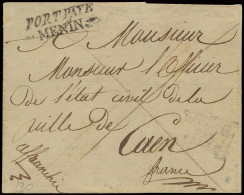 PORT PAYÉ
MENIN
Monsieur
Monsieur l'officier
de l'état civil de la
ville de
Caen
affranchie
france